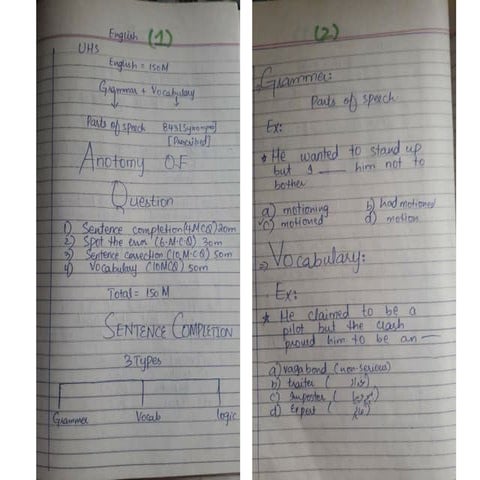 English (1)
UHS
English = 150M
Grammer + Vocabulary
Parts of speech 843 [Synonyms]
[Prescribed]
Anotomy OF
Question
1) Sentence completion (4MCQ) 20m
2) Spot the error (6.M.C.Q). 30m
3) Sentence correction (10,M.C.Q) 50m
4) Vocabulary (10MCQ) 50m
Total = 150M
SENTENCE COMPLETION
3 Types
Grammer Vocab logic
(2)
Grammer:
Parts of speech
Ex:
* He wanted to stand up
but I ___ him not to
bother
a) motioning b) had motioned
c) motioned d) motion
⇒ Vocabulary:
Ex:
* He claimed to be a
pilot but the crash
proved him to be an —
a) vagabond (non-serious)
b) traiter (
c) Imposter (
d) Expert (